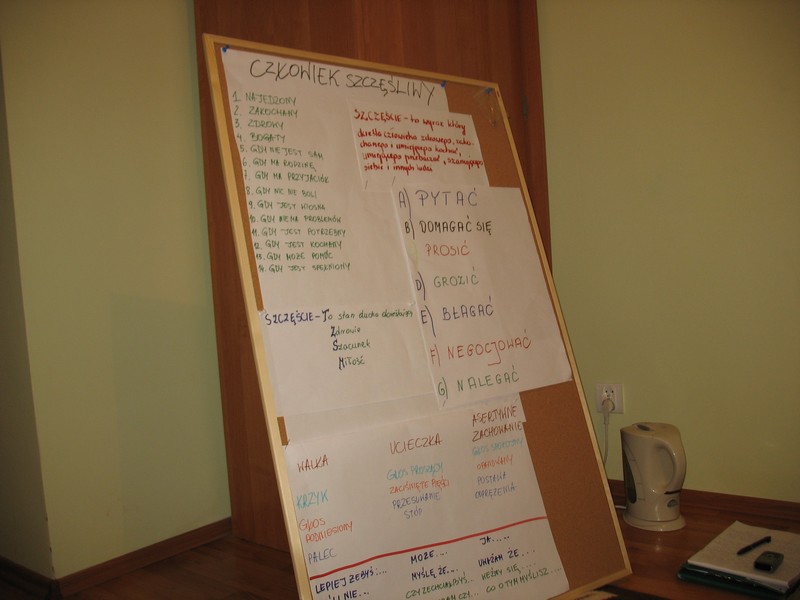 CZŁOWIEK SZCZĘŚLIWY
1. NAJEDZONY
2. ZAKOCHANY
3. ZDROWY
4. BOGATY
5. GDY NIE JEST SAM
6. GDY MA RODZINĘ
7. GDY MA PRZYJACIÓŁ
8. GDY NIC NIE BOLI
9. GDY JEST WIOSNA
10. GDY NIEMA PROBLEMÓW
11. GDY JEST POTRZEBNY
12. GDY JEST KOCHANY
13. GDY MOŻE POMÓC
14. GDY JEST SPEŁNIONY
SZCZĘŚCIE - to wyraz który
określa człowieka zdrowego, zako-
chanego i umiejącego kochać,
umiejącego przebaczać, szanującego
siebie i innych ludzi
A) PYTAĆ
B) DOMAGAĆ SIĘ
PROSIĆ
D) GROZIĆ
E) BŁAGAĆ
F) NEGOCJOWAĆ
G) NALEGAĆ
SZCZĘŚCIE - To stan ducha
Zdrowie
Szacunek
Miłość
WALKA
KRZYK
GŁOS
PODNIESIONY
PALEC
UCIECZKA
GŁOS PROSZĄCY
ZACIŚNIĘTE PIĘŚCI
PRZESUWANIE
STÓP
ASERTYWNE
ZACHOWANIE
GŁOS SPOKOJNY
OPANOWANY
POSTAWA
ODPRĘŻENIA
LEPIEJ ŻEBYŚ....
MOŻE....
MYŚLĘ ŻE....
CZY ZECHCIAŁBYŚ...
JA.....
UWAŻAM ŻE....
CO O TYM MYŚLISZ....